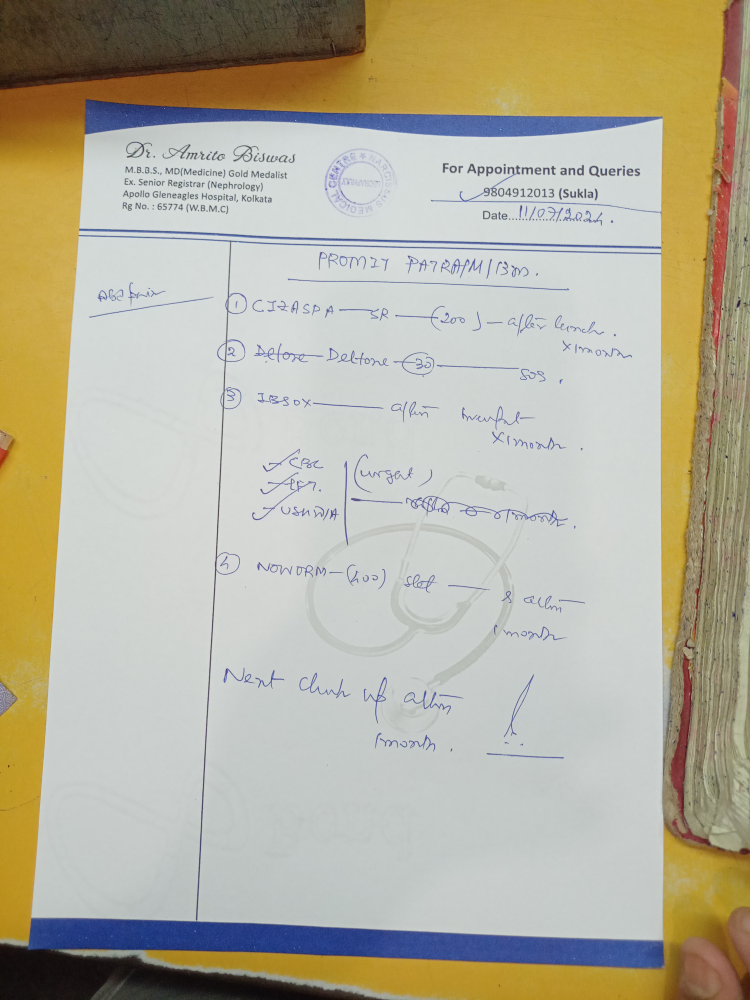 Dr. Amrito Biswas
M.B.B.S., MD(Medicine) Gold Medalist
Ex. Senior Registrar (Nephrology)
Apollo Gleneagles Hospital, Kolkata
Rg No. : 65774 (W.B.M.C)
NARCISSUS MEDICAL CENTRE
For Appointment and Queries
9804912013 (Sukla)
Date...11/07/2024.
PROMIT PATRA/M/
① CIZASPA — SR — (200) — after lunch.
x1month
② Deltone — 30 — SOS.
③ IBSOX — after
x1month.
CBC
LFT.
USH W/A
(urgent)
NOWORM — (400) stat —
1 month
Next check up
1month.